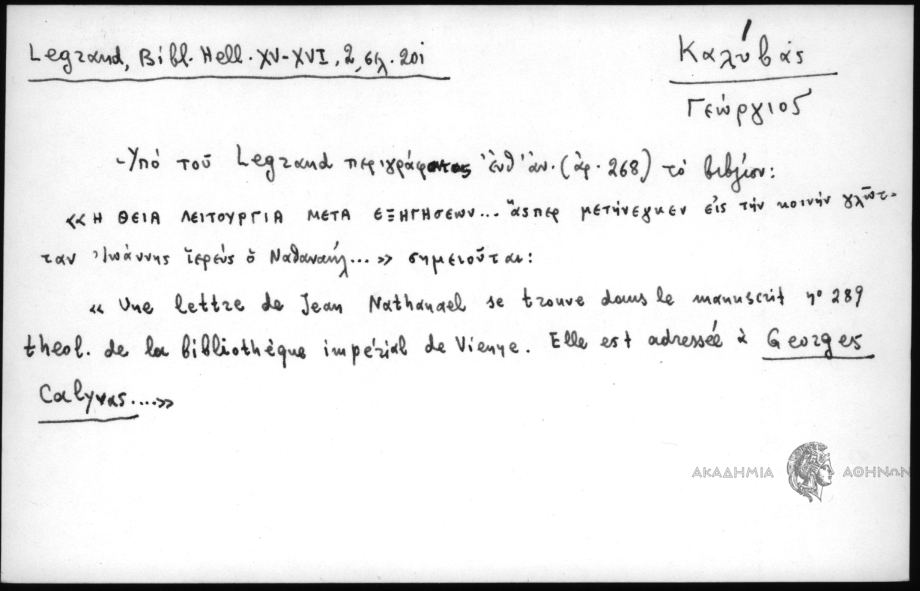 Legrand, Bibl. Hell. XV-XVI, 2, σελ. 201
Καλύβας
Γεώργιος
-Ὑπό τοῦ Legrand περιγράφοντος ἐνθ' ἀν. (ἀρ. 268) τό βιβλίον:
«Η ΘΕΙΑ ΛΕΙΤΟΥΡΓΙΑ ΜΕΤΑ ΕΞΗΓΗΣΕΩΝ... ἅςπερ μετήνεγκεν εἰς τήν κοινήν γλῶτ-
ταν Ἰωάννης ἱερεύς ὁ Ναθαναήλ...» σημειοῦται:
« Une lettre de Jean Nathanael se trouve dans le manuscrit nº 289
theol. de la bibliothèque impérial de Vienne. Elle est adressée à Georges
Calyvas....»
ΑΚΑΔΗΜΙΑ ΑΘΗΝΩΝ